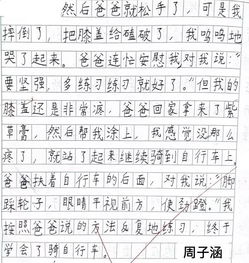 然后爸爸就松手了，可是我
摔倒了，把膝盖给磕破了，我呜呜地
哭了起来。爸爸连忙安慰我对我说：“
要坚强，多练习练习就好了。”但我的
膝盖还是非常疼，爸爸回家拿来了紫
草膏，然后帮我涂上，我感觉没那么
疼了，就站了起来继续骑到自行车上。
爸爸扶着自行车的后面，对我说：“脚
踩轮子，眼睛平视前方，使劲蹬。”我
按照爸爸说的方法反复地练习，终于
学会了骑自行车。
周子涵